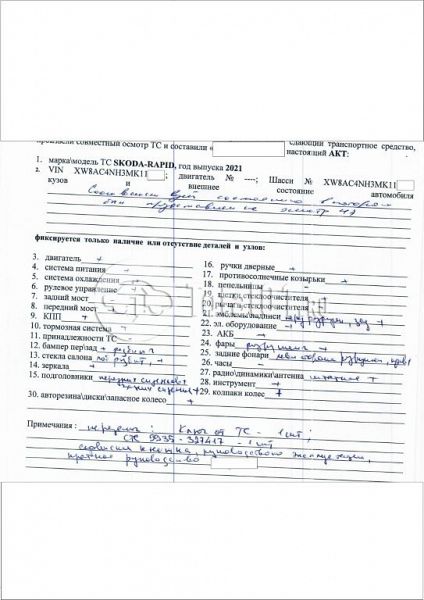 произвели совместный осмотр ТС и составили о
сдающий транспортное средство,
настоящий АКТ:
1. марка\модель ТС SKODA-RAPID, год выпуска 2021
2. VIN XW8AC4NH3MK11 ; двигатель № ----; Шасси № XW8AC4NH3MK11
кузов и внешнее состояние автомобиля
фиксируется только наличие или отсутствие деталей и узлов:
3. двигатель +
4. система питания +
5. система охлаждения
6. рулевое управление
7. задний мост
8. передний мост
9. КПП +
10. тормозная система +
11. принадлежности ТС -
12. бампер пер\зад + разбит
13. стекла салона
14. зеркала +
15. подголовники передних сидений
задних сидений +
30. авторезина\диски\запасное колесо +
16. ручки дверные +
17. противосолнечные козырьки +
18. пепельницы -
19. щетки стеклоочистителя
20. рычаги стеклоочистителя
21. эмблемы\надписи
22. эл. оборудование +
23. АКБ +
24. фары разрушены +
25. задние фонари
26. часы -
27. радио\динамики\антенна штатные +
28. инструмент +
29. колпаки колес 7
Примечания : передны : Ключ от ТС - 1 шт ;
СТС 9935 - 327417 - 1 шт
сервисная книжка, руководство эксплуатации,
краткое руководство